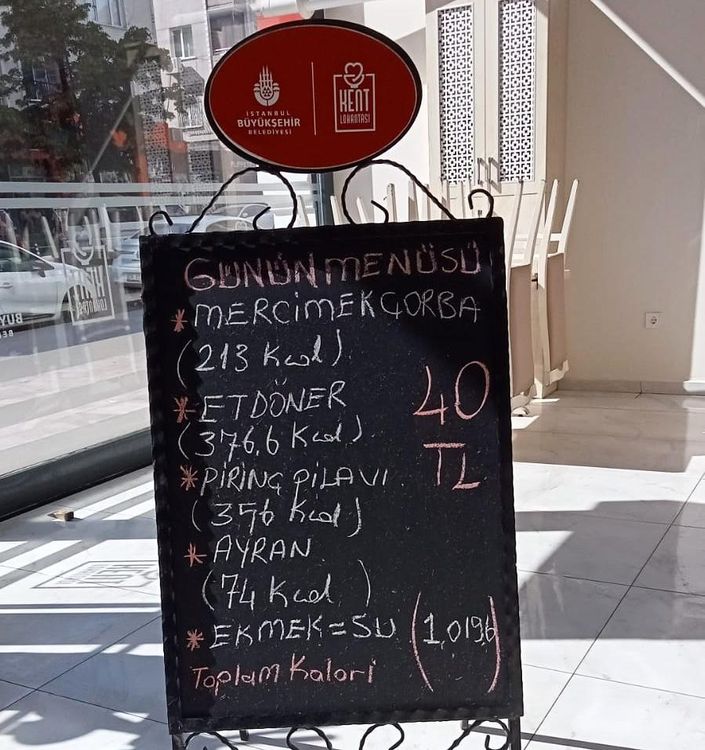 İSTANBUL
BÜYÜKŞEHİR
BELEDİYESİ
KENT
LOKANTASI
GÜNÜN MENÜSÜ
* MERCİMEK ÇORBA
(213 Kcal)
* ET DÖNER
(376,6 Kcal)
40
TL
* PİRİNÇ PİLAVI
(356 Kcal)
* AYRAN
(74 Kcal)
* EKMEK = SU (1,019,6)
Toplam Kalori